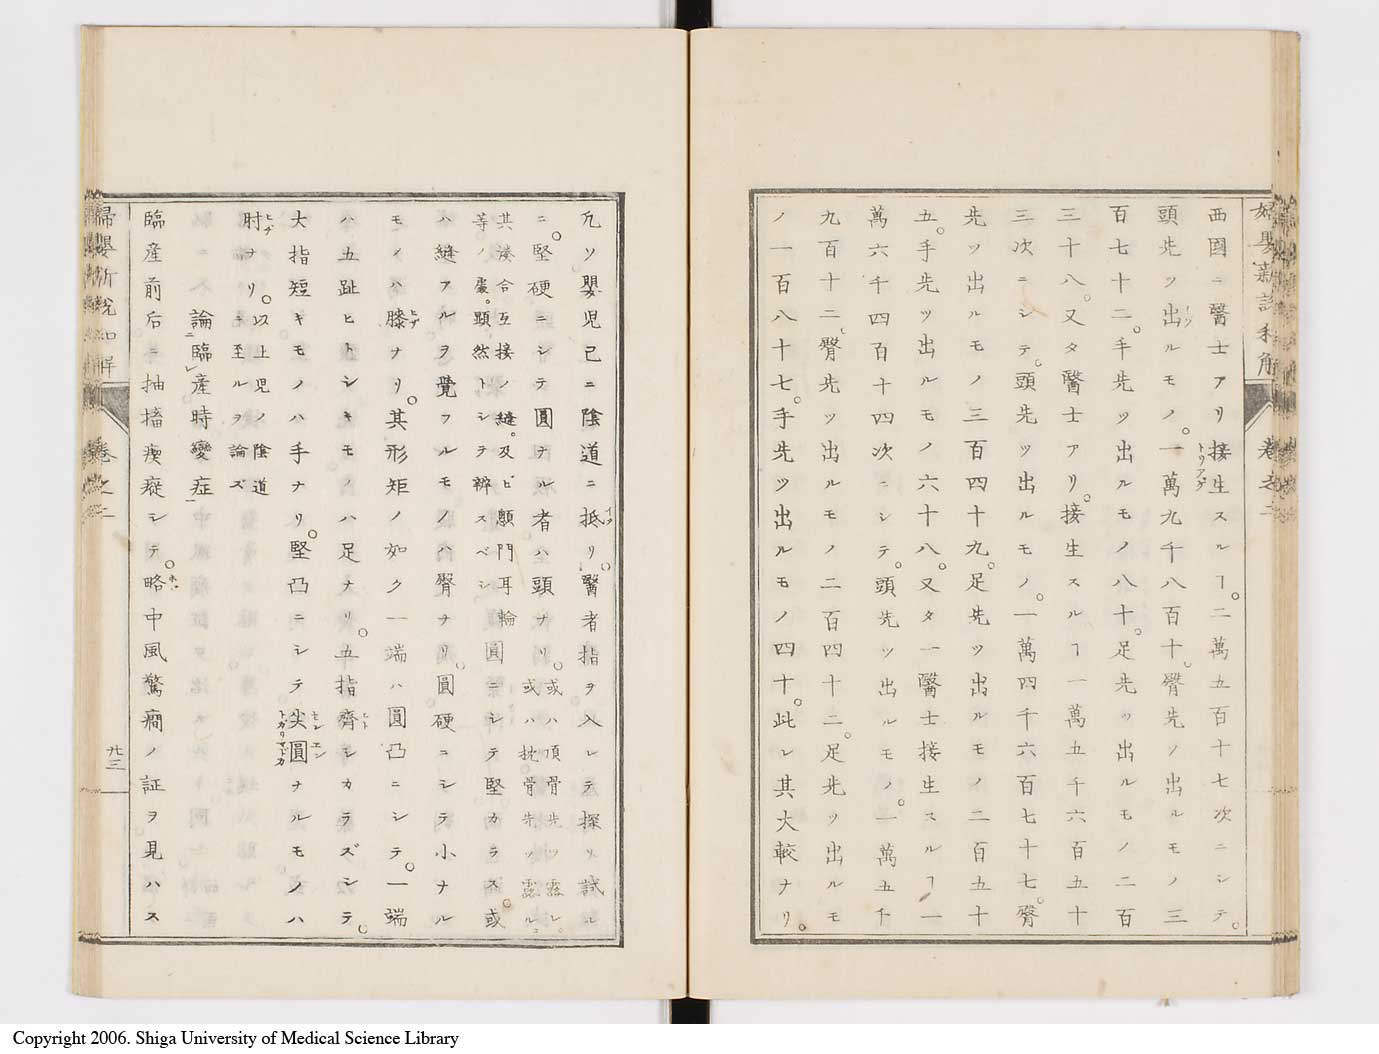 西國ニ醫士アリ接生スルヿ。二萬五百十七次ニシテ。
頭先ツ出ルモノ。一萬九千八百十。臀先ノ出ルモノ三
百七十二。手先ツ出ルモノ八十。足先ッ出ルモノ二百
三十八。又タ醫士アリ。接生スルヿ一萬五千六百五十
三次ニシテ。頭先ッ出ルモノ。一萬四千六百七十七。臀
先ツ出ルモノ三百四十九。足先ッ出ルモノ二百五十
五。手先ッ出ルモノ六十八。又タ一醫士接生スルヿ一
萬六千四百十四次ニシテ。頭先ッ出ルモノ。一萬五千
九百十二、臀先ッ出ルモノ二百四十二。足先ッ出ルモ
ノ一百八十七。手先ッ出ルモノ四十。此レ其大較ナリ。
婦嬰新説和解
卷之二
凡ソ嬰児已ニ陰道ニ抵リ。醫者指ヲ入レテ探リ試ル
ニ。堅硬ニシテ圓ナル者ハ頭ナリ。或ハ頂骨先ッ露レ。或ハ枕骨先ッ露ル。
其湊合互接ノ縫。及ビ顖門耳輪等ノ處。顕然トシテ辨スベシ。圓ニシテ堅カラス或
ハ縫アルヲ覺フルモノハ臀ナリ。圓硬ニシテ小ナル
モノハ膝ナリ。其形矩ノ如ク一端ハ圓凸ニシテ。一端
ハ五趾ヒトシキモノハ足ナリ。五指齊シカラズシテ。
大指短キモノハ手ナリ。堅凸ニシテ尖圓ナルモノハ
肘ナリ。以上児ノ陰道ニ至ルヲ論ズ
論臨産時變症
臨産前后ニ抽搐瘈瘲シテ。略中風驚癇ノ証ヲ見ハス
婦嬰新説和解
卷之二
廿三
Copyright 2006. Shiga University of Medical Science Library